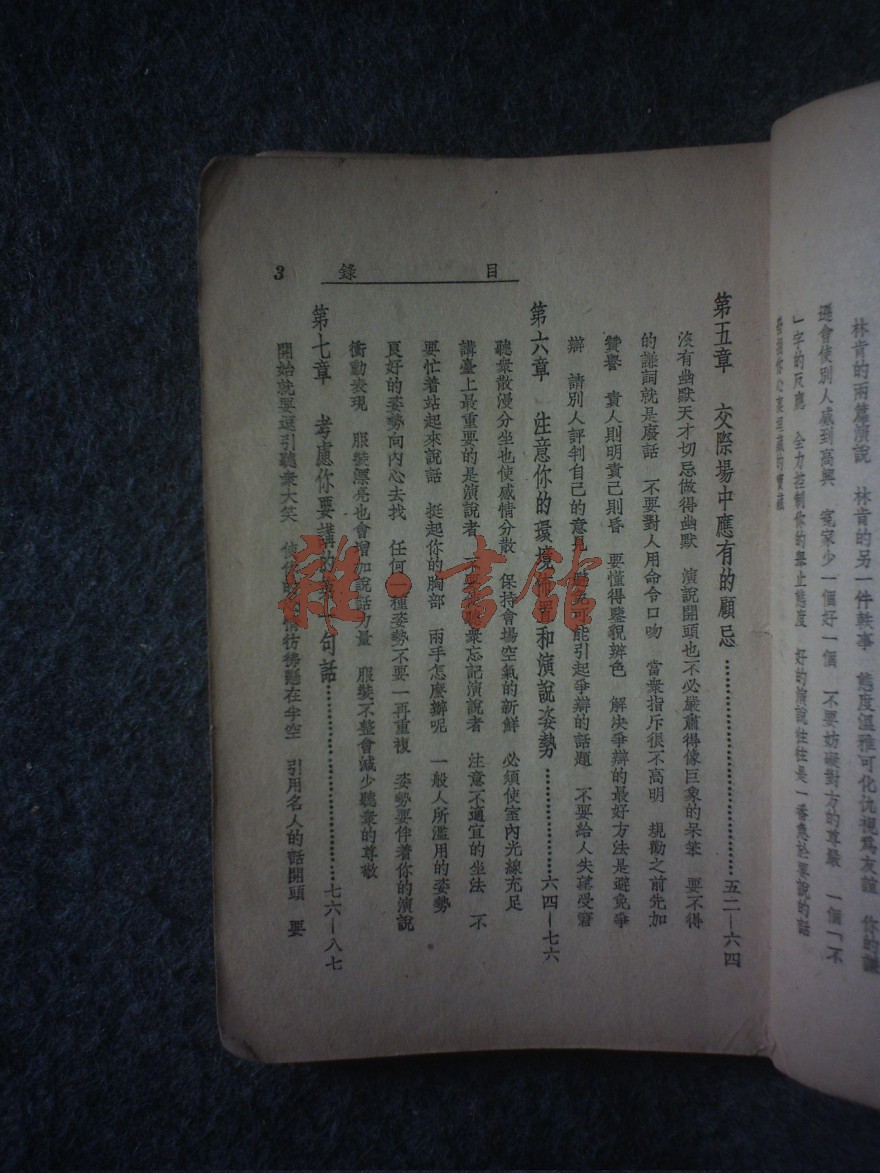 林肯的兩篇演說　林肯的另一件軼事　態度溫雅可化仇視爲友誼　你的謙
遜會使別人感到高興　冤家少一個好一個　不要妨礙對方的尊嚴　一個「不
」字的反應　全力控制你的舉止態度　好的演說往往是一番急於要說的話
目錄
3
第五章　交際場中應有的顧忌…………五二—六四
沒有幽默天才切忌做得幽默　演說開頭也不必嚴肅得像巨象的呆笨　要不得
的謙詞就是廢話　不要對人用命令口吻　當衆指斥很不高明　規勸之前先加
贊譽　責人則明責己則昏　要懂得鑒貌辨色　解決爭辯的最好方法是避免爭
辯　請別人評判自己的意見　避免可能引起爭辯的話題　不要給人失望受窘
第六章　注意你的環境佈置和演說姿勢…………六四—七六
聽衆散漫分坐也使感情分散　保持會場空氣的新鮮　必須使室內光線充足
講臺上最重要的是演說者　不要聽衆忘記演說者　注意不適宜的坐法　不
要忙着站起來說話　挺起你的胸部　兩手怎麼辦呢　一般人所濫用的姿勢
良好的姿勢向內心去找　任何一種姿勢不要一再重複　姿勢要伴着你的演說
衝動表現　服裝漂亮也會增加說話力量　服裝不整會減少聽衆的尊敬
第七章　考慮你要講的第一句話…………七六—八七
開始就要逗引聽衆大笑　使彷彿懸在半空　引用名人的話開頭　要
雜·書館